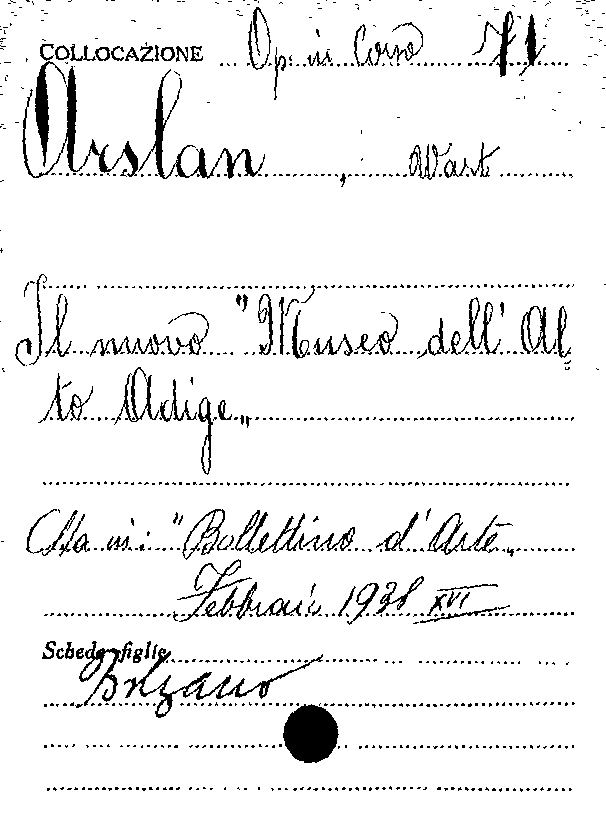 COLLOCAZIONE Op. in Corso 71
Arslan , Wart
Il nuovo "Museo dell' Al=
to Adige„
Sta in: "Bollettino d'Arte„
Febbraio 1938 XVI
Schede figlie
Bolzano